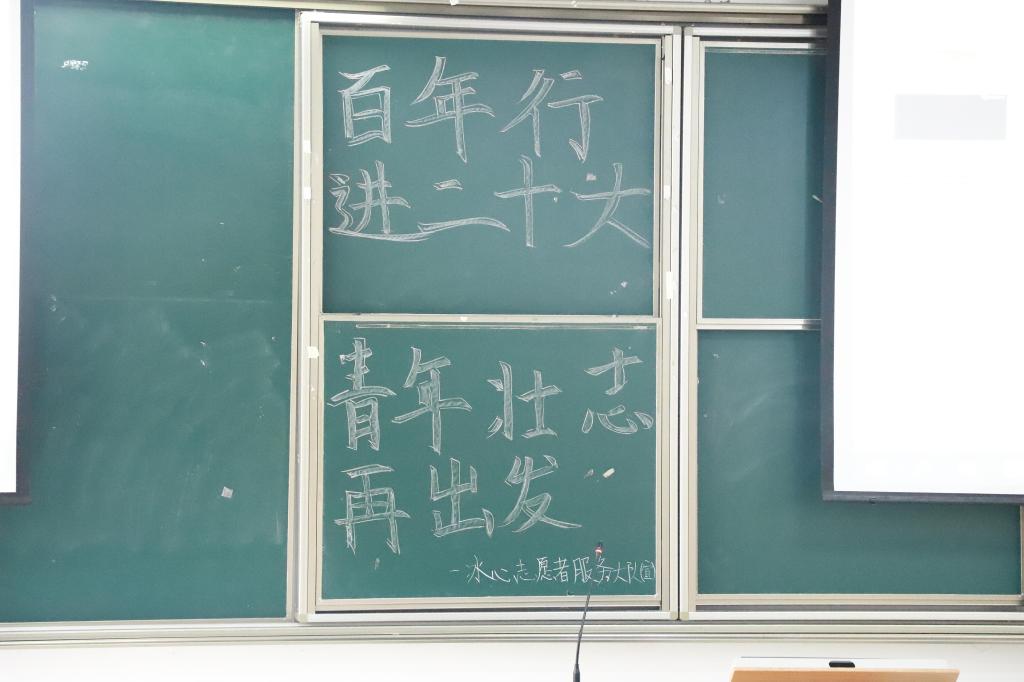 百年行
进二十大
青年壮志
再出发
一冰心志愿者服务大队(宣)